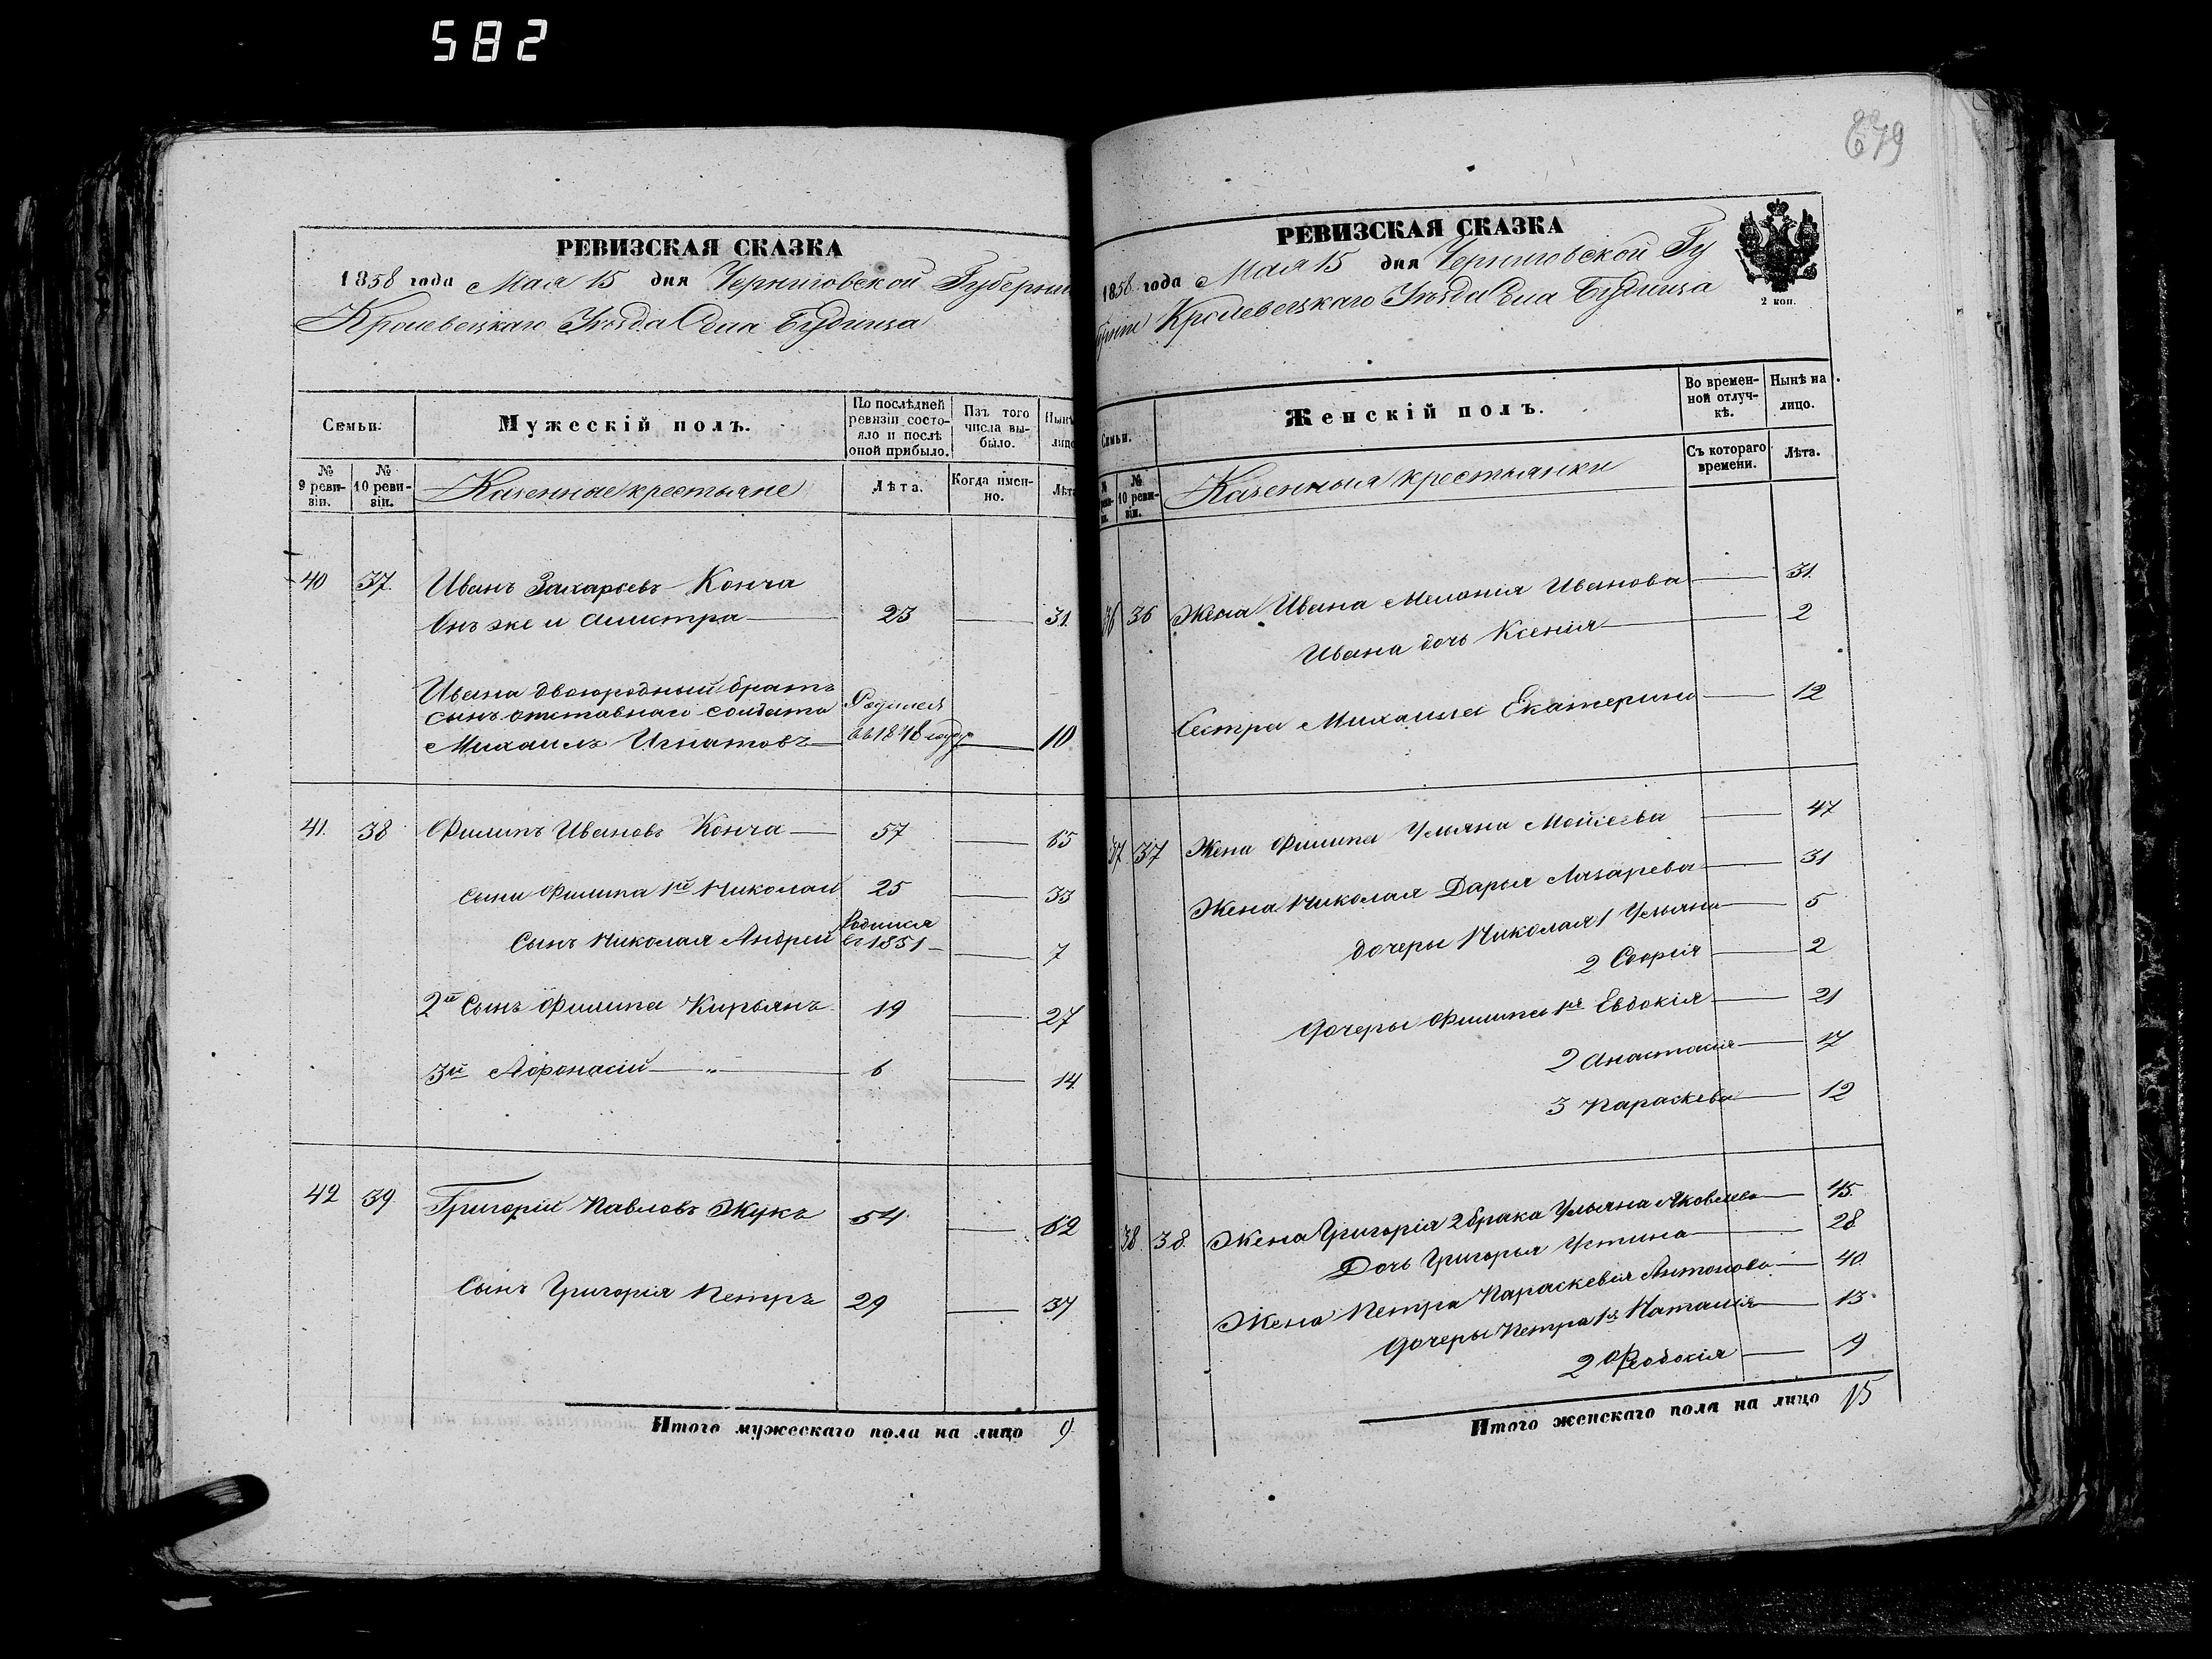 582
679
РЕВИЗСКАЯ СКАЗКА
1858 года Мая 15 дня Черниговской Губерніи
Кролевецкаго Уѣзда Села Будища
Семьи.
Мужескій полъ.
По послѣдней ревизіи состояло и послѣ оной прибыло.
Изъ того числа выбыло.
Нынѣ лицо
№ 9 ревизіи.
№ 10 ревизіи.
Казенные крестьяне
Лѣта.
Когда именно.
Лѣта
40 37. Иванъ Захарьевъ Конча
Онъ же и 23 — 31.
Ивана двоюродный братъ
сынъ отставнаго солдата Родился
Михаилъ Игнатовъ — въ 1848 году — 10
41. 38 Филипъ Ивановъ Конча — 57 — 65
Сыни Филипа 1й Николай 25 — 33
Родился
Сынъ Николая Андрей въ 1851 — 7
2й Сынъ Филипа Кирьянъ 19 — 27
3й Афонасій — " — 6 — 14
42 39. Григорій Павловъ Жукъ 54 — 62
Сынъ Григорія Петръ 29 — 37
Итого мужескаго пола на лицо 9
РЕВИЗСКАЯ СКАЗКА
1858 года Мая 15 дня Черниговской Гу
берніи Кролевецкаго Уѣзда Села Будища
2 коп.
Семьи.
Женскій полъ.
Во временной отлучкѣ.
Нынѣ на лицо.
№ 10 ревизіи.
Казенныя крестьянки
Съ котораго времени.
Лѣта.
36 36 Жена Ивана Меланія Иванова — 31.
Ивана дочь Ксенія — 2
Сестра Михаила Екатерина — 12
37 37 Жена Филипа Ульяна Моисеева — 47
Жена Николая Дарья Лазарева — 31
дочеры Николая 1 Ульяна — 5
2 Софія — 2
Дочеры Филипа 1я Евдокія — 21
2 Анастасія — 17
3 Параскева — 12
38. 38. Жена Григорія 2 брака Ульяна Яковлева — 45.
Дочь Григорья Устина — 28
Жена Петра Параскевія Антонова — 40.
Дочеры Петра 1я Наталія — 13
2 Феодосія — 9
Итого женскаго пола на лицо 15